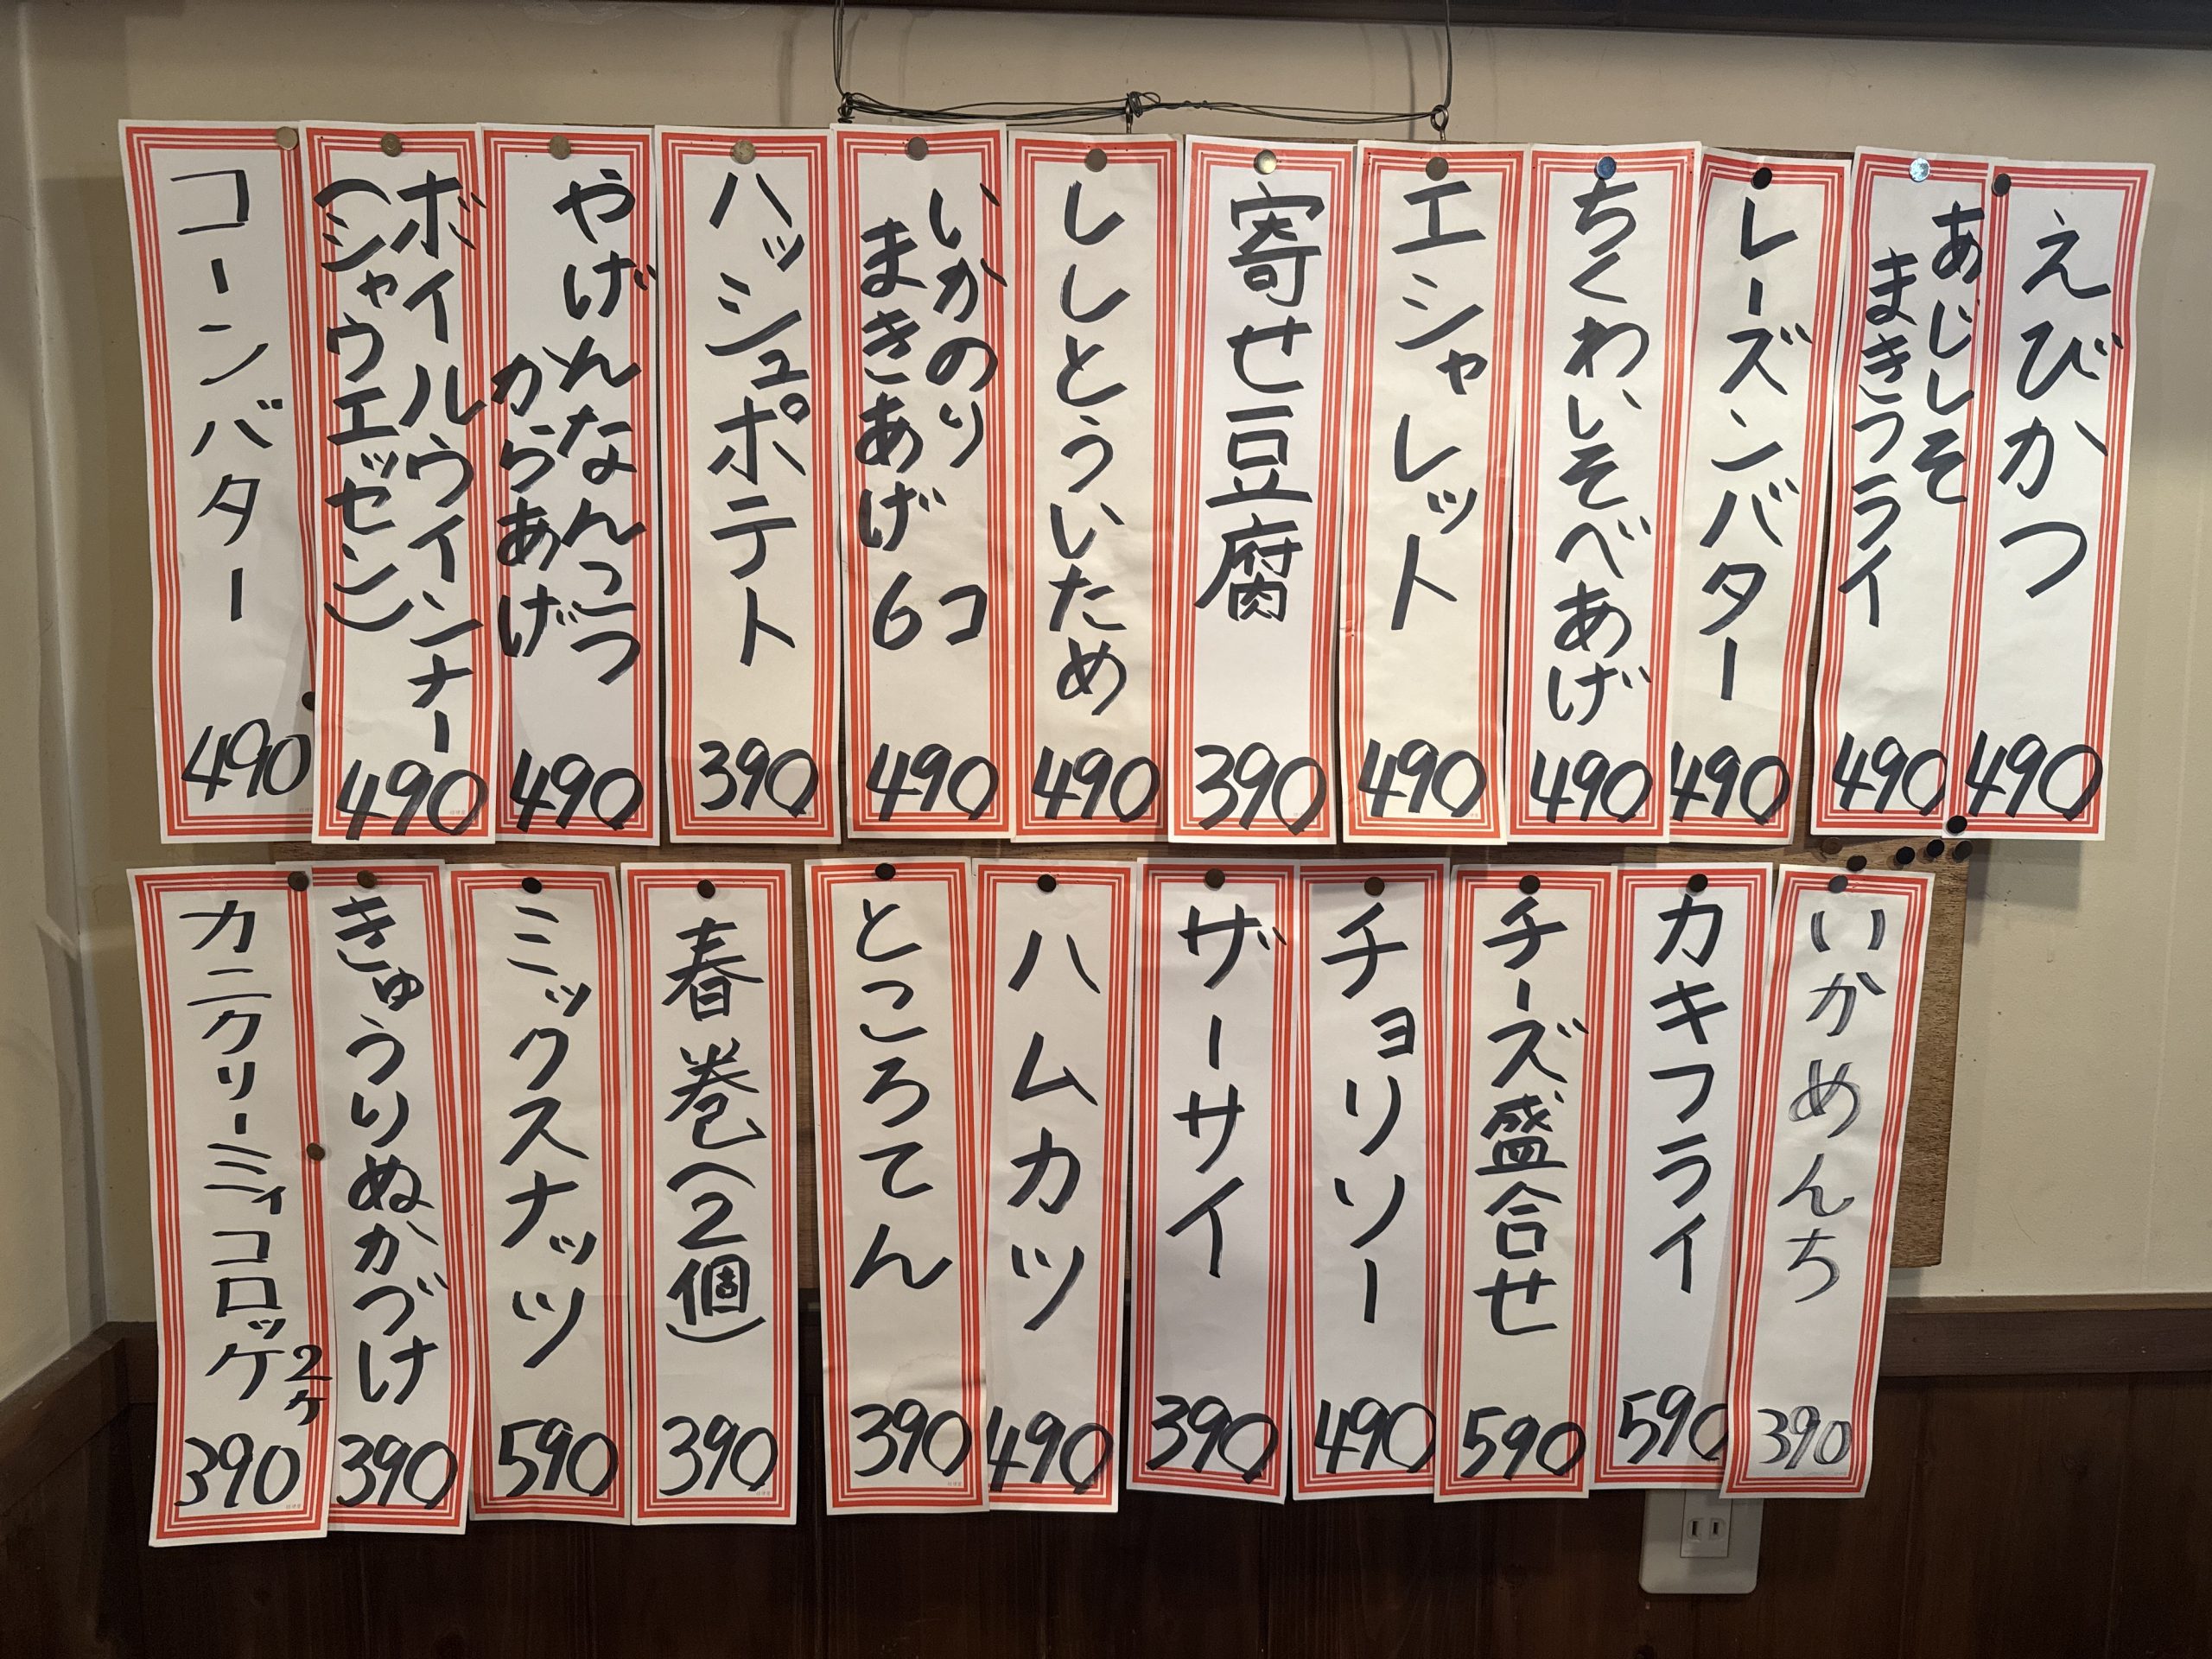 えびかつ
490
あじしそ
まきフライ
490
レーズンバター
490
ちくわいそべあげ
490
エシャレット
490
寄せ豆腐
390
ししとういため
490
いかのり
まきあげ 6コ
490
ハッシュポテト
390
やげんなんこつ
からあげ
490
ボイルウインナー
(シャウエッセン)
490
コーンバター
490
いかめんち
390
カキフライ
590
チーズ盛合せ
590
チョリソー
490
ザーサイ
390
ハムカツ
490
ところてん
390
春巻(2個)
390
ミックスナッツ
590
きゅうりぬかづけ
390
カニクリーミィコロッケ 2ヶ
390